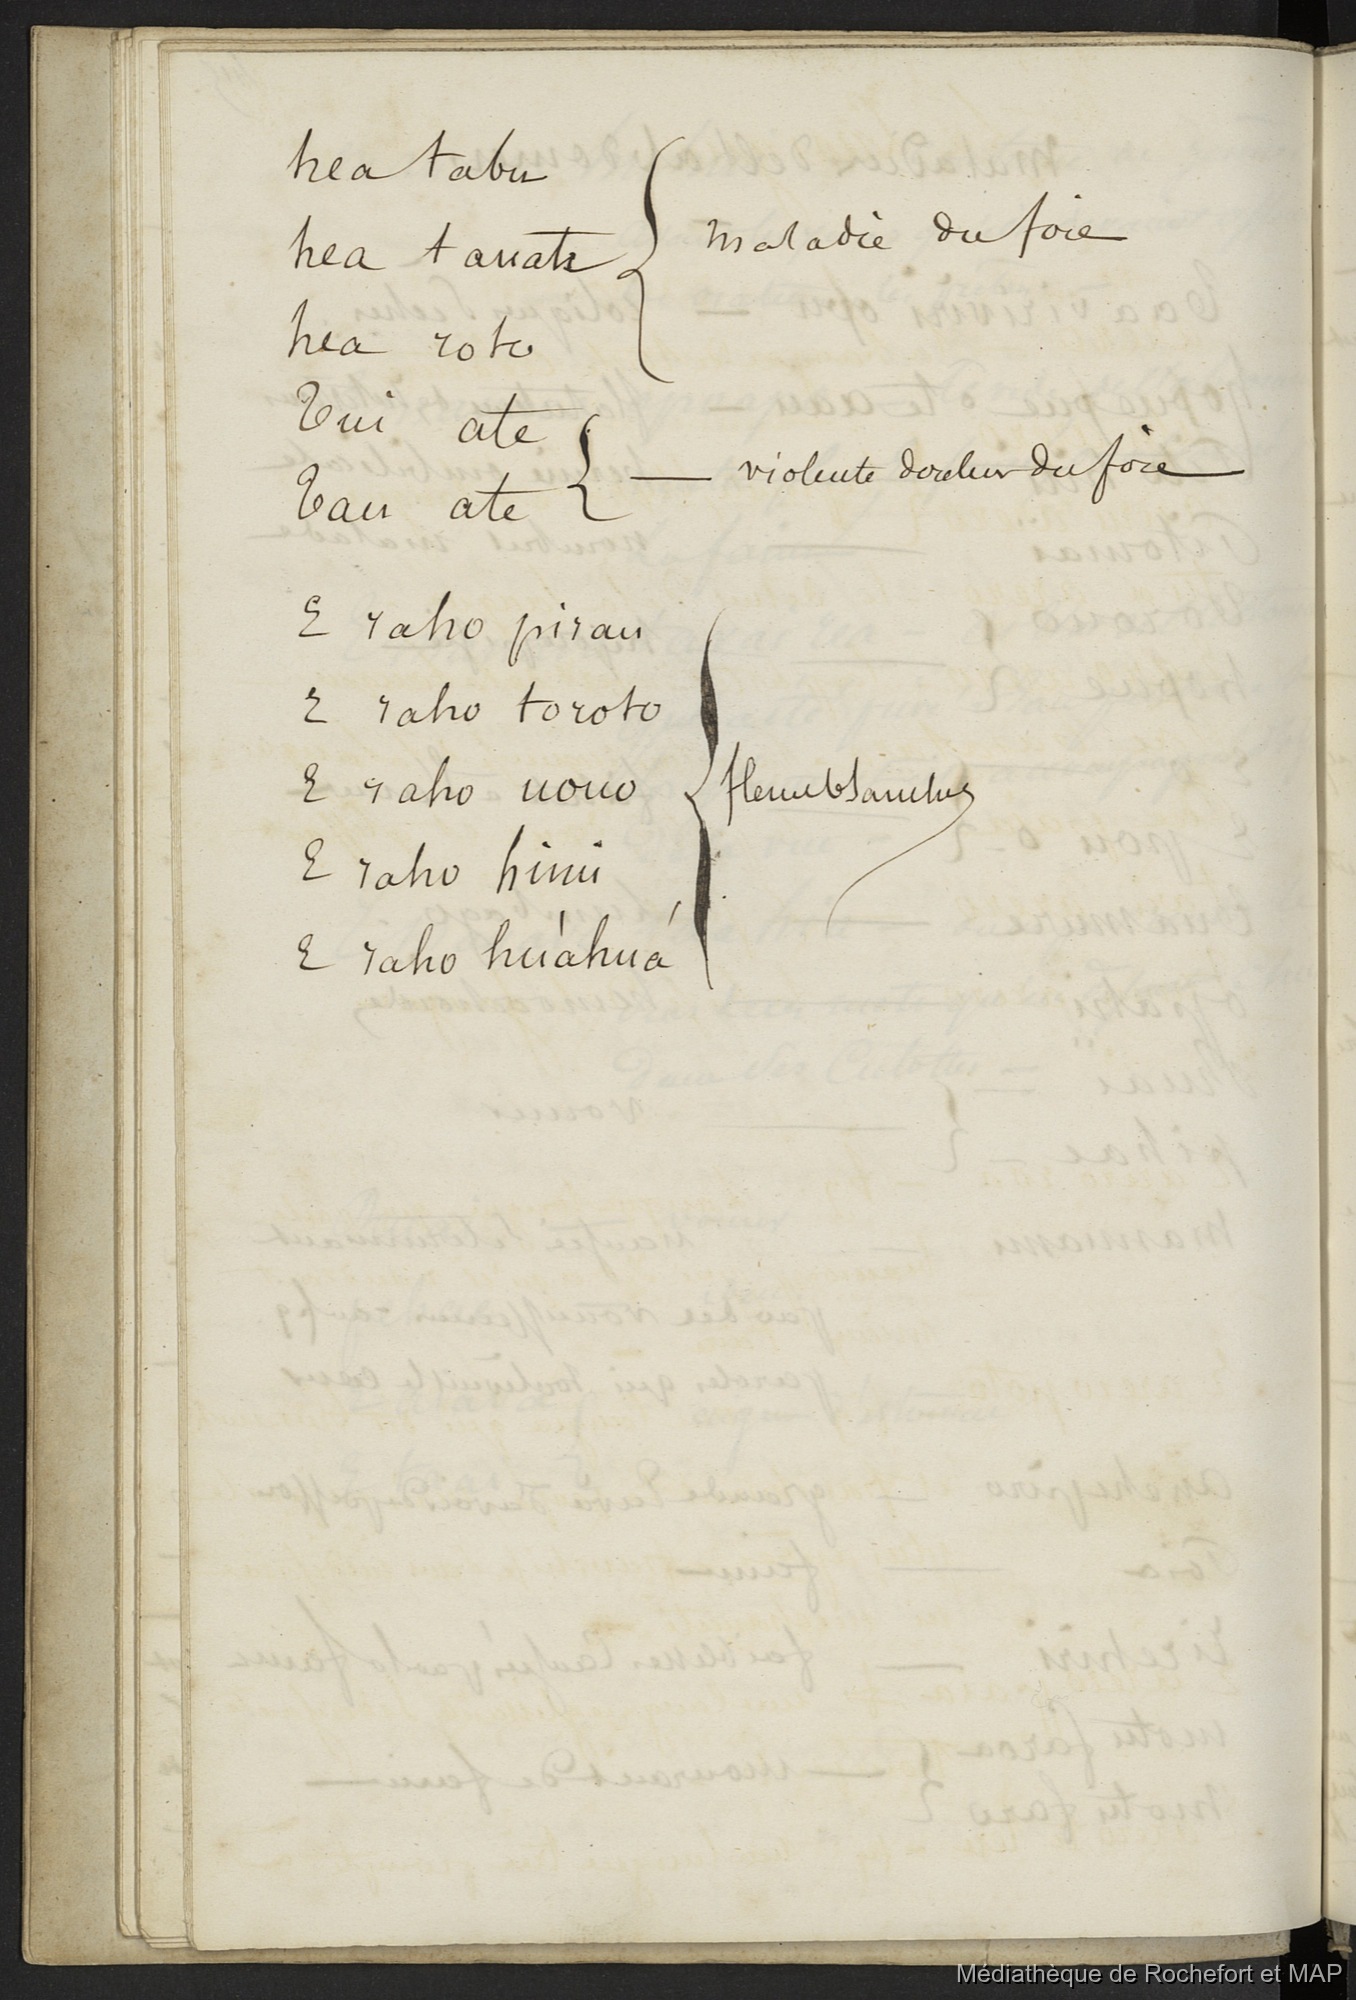 hea tabu
hea tauati
hea roto
maladie du foie
Tui ate
Tau ate
— violente douleur du foie
E raho pirau
E raho toroto
E raho uouo
E raho hinii
E raho huáhuá
fleurs blanches
Médiathèque de Rochefort et MAP